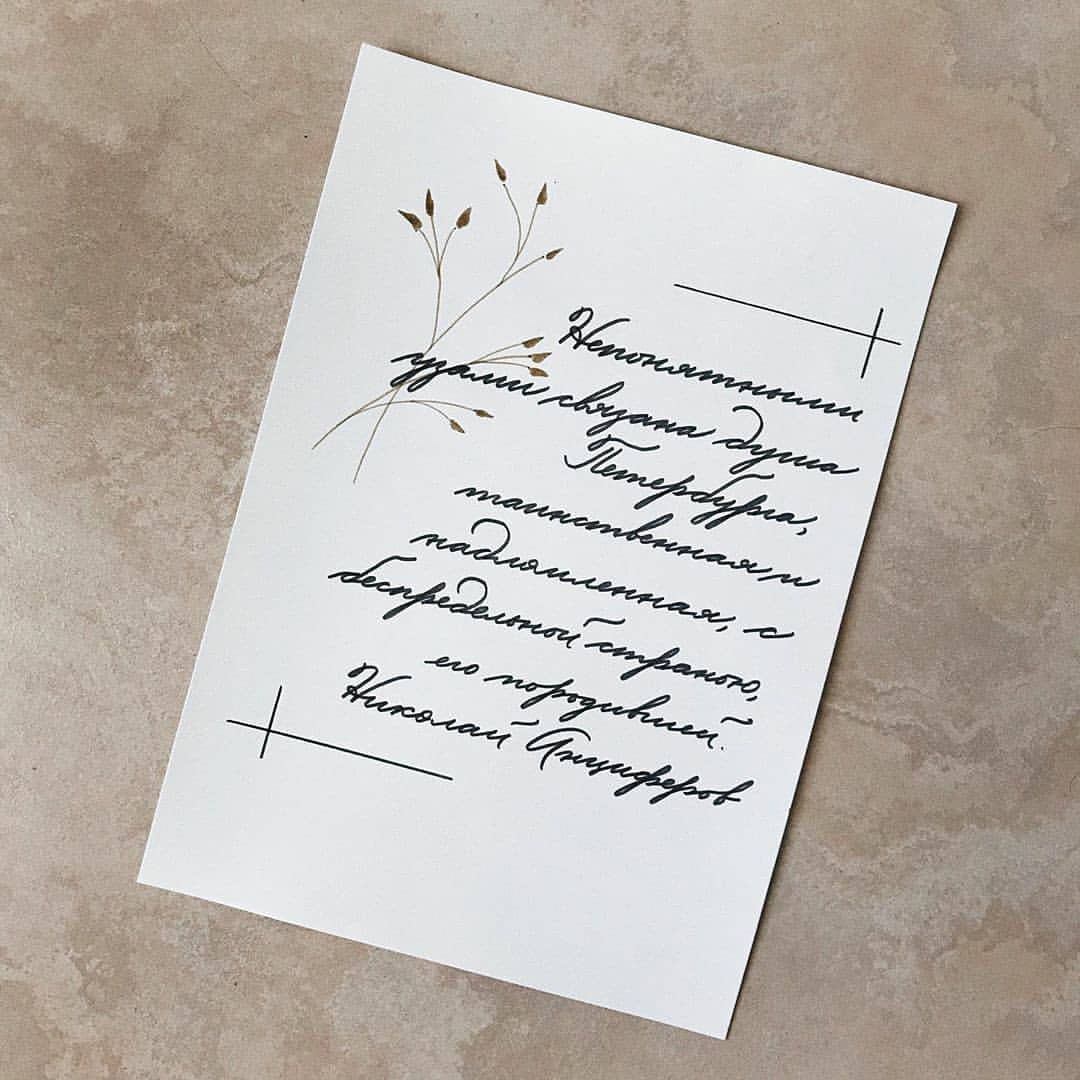 Непонятными
узами связана душа
Петербурга,
таинственная и
надломленная, с
беспредельной страною,
его породившей.
Николай Анциферов